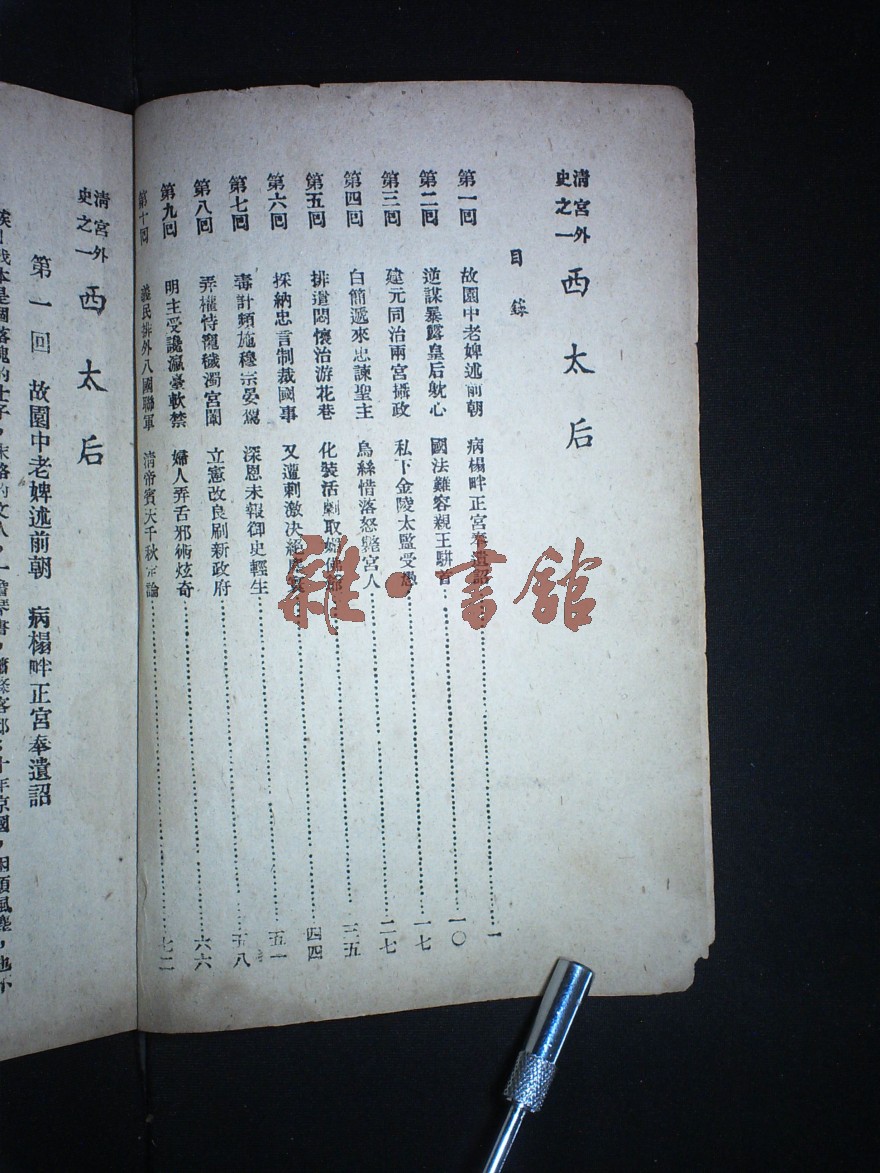 清宮外史之一 西太后
目錄
第一回 故園中老婢述前朝 病榻畔正宮奉遺詔……一
第二回 逆謀暴露皇后躭心 國法難容親王駢首……一〇
第三回 建元同治兩宮攝政 私下金陵太監受……一七
第四回 白簡遞來忠諫聖主 烏絲惜落怒宮人……二七
第五回 排遣悶懷治游花巷 化裝活劇取……三五
第六回 採納忠言制裁國事 又遭刺激決絕……四四
第七回 毒計頻施穆宗晏駕 深恩未報御史輕生……五一
第八回 弄權恃寵穢濁宮闈 立憲改良刷新政府……五八
第九回 明主受讒瀛臺軟禁 婦人弄舌邪術炫奇……六六
第十回 義民排外八國聯軍 清帝賓天千秋定論……七二
雜·書館
清宮外史之一 西太后
第一回 故園中老婢述前朝 病榻畔正宮奉遺詔